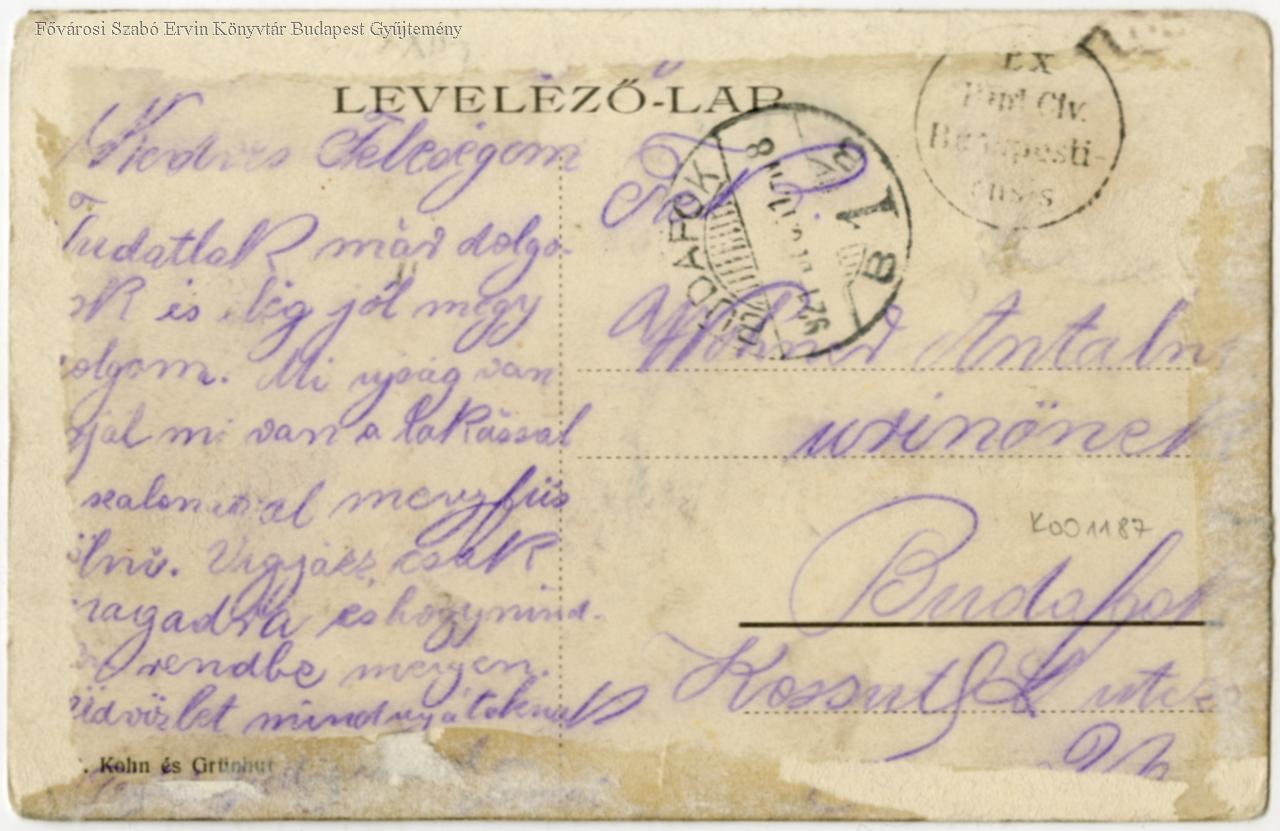 Fővárosi Szabó Ervin Könyvtár Budapest Gyűjtemény
LEVELEZŐ-LAP
Kedves Feleségem
Tudatlak már dolgo-
ok és elég jól megy
olgom. Mi ujság van
rjál mi van a lakással
szalonnával megyfüs
ölni. Vigyázz csak
magadra és hogy mind-
rendbe menyen.
üdvözlet mindnyájatoknak
. Kohn és Grünhut
BUDAFOK
921
B 1 B
EX
Bibl. Civ.
Budapesti-
ensis
Antaln
urinőnek
K001187
Budafok
Kossuth L utca